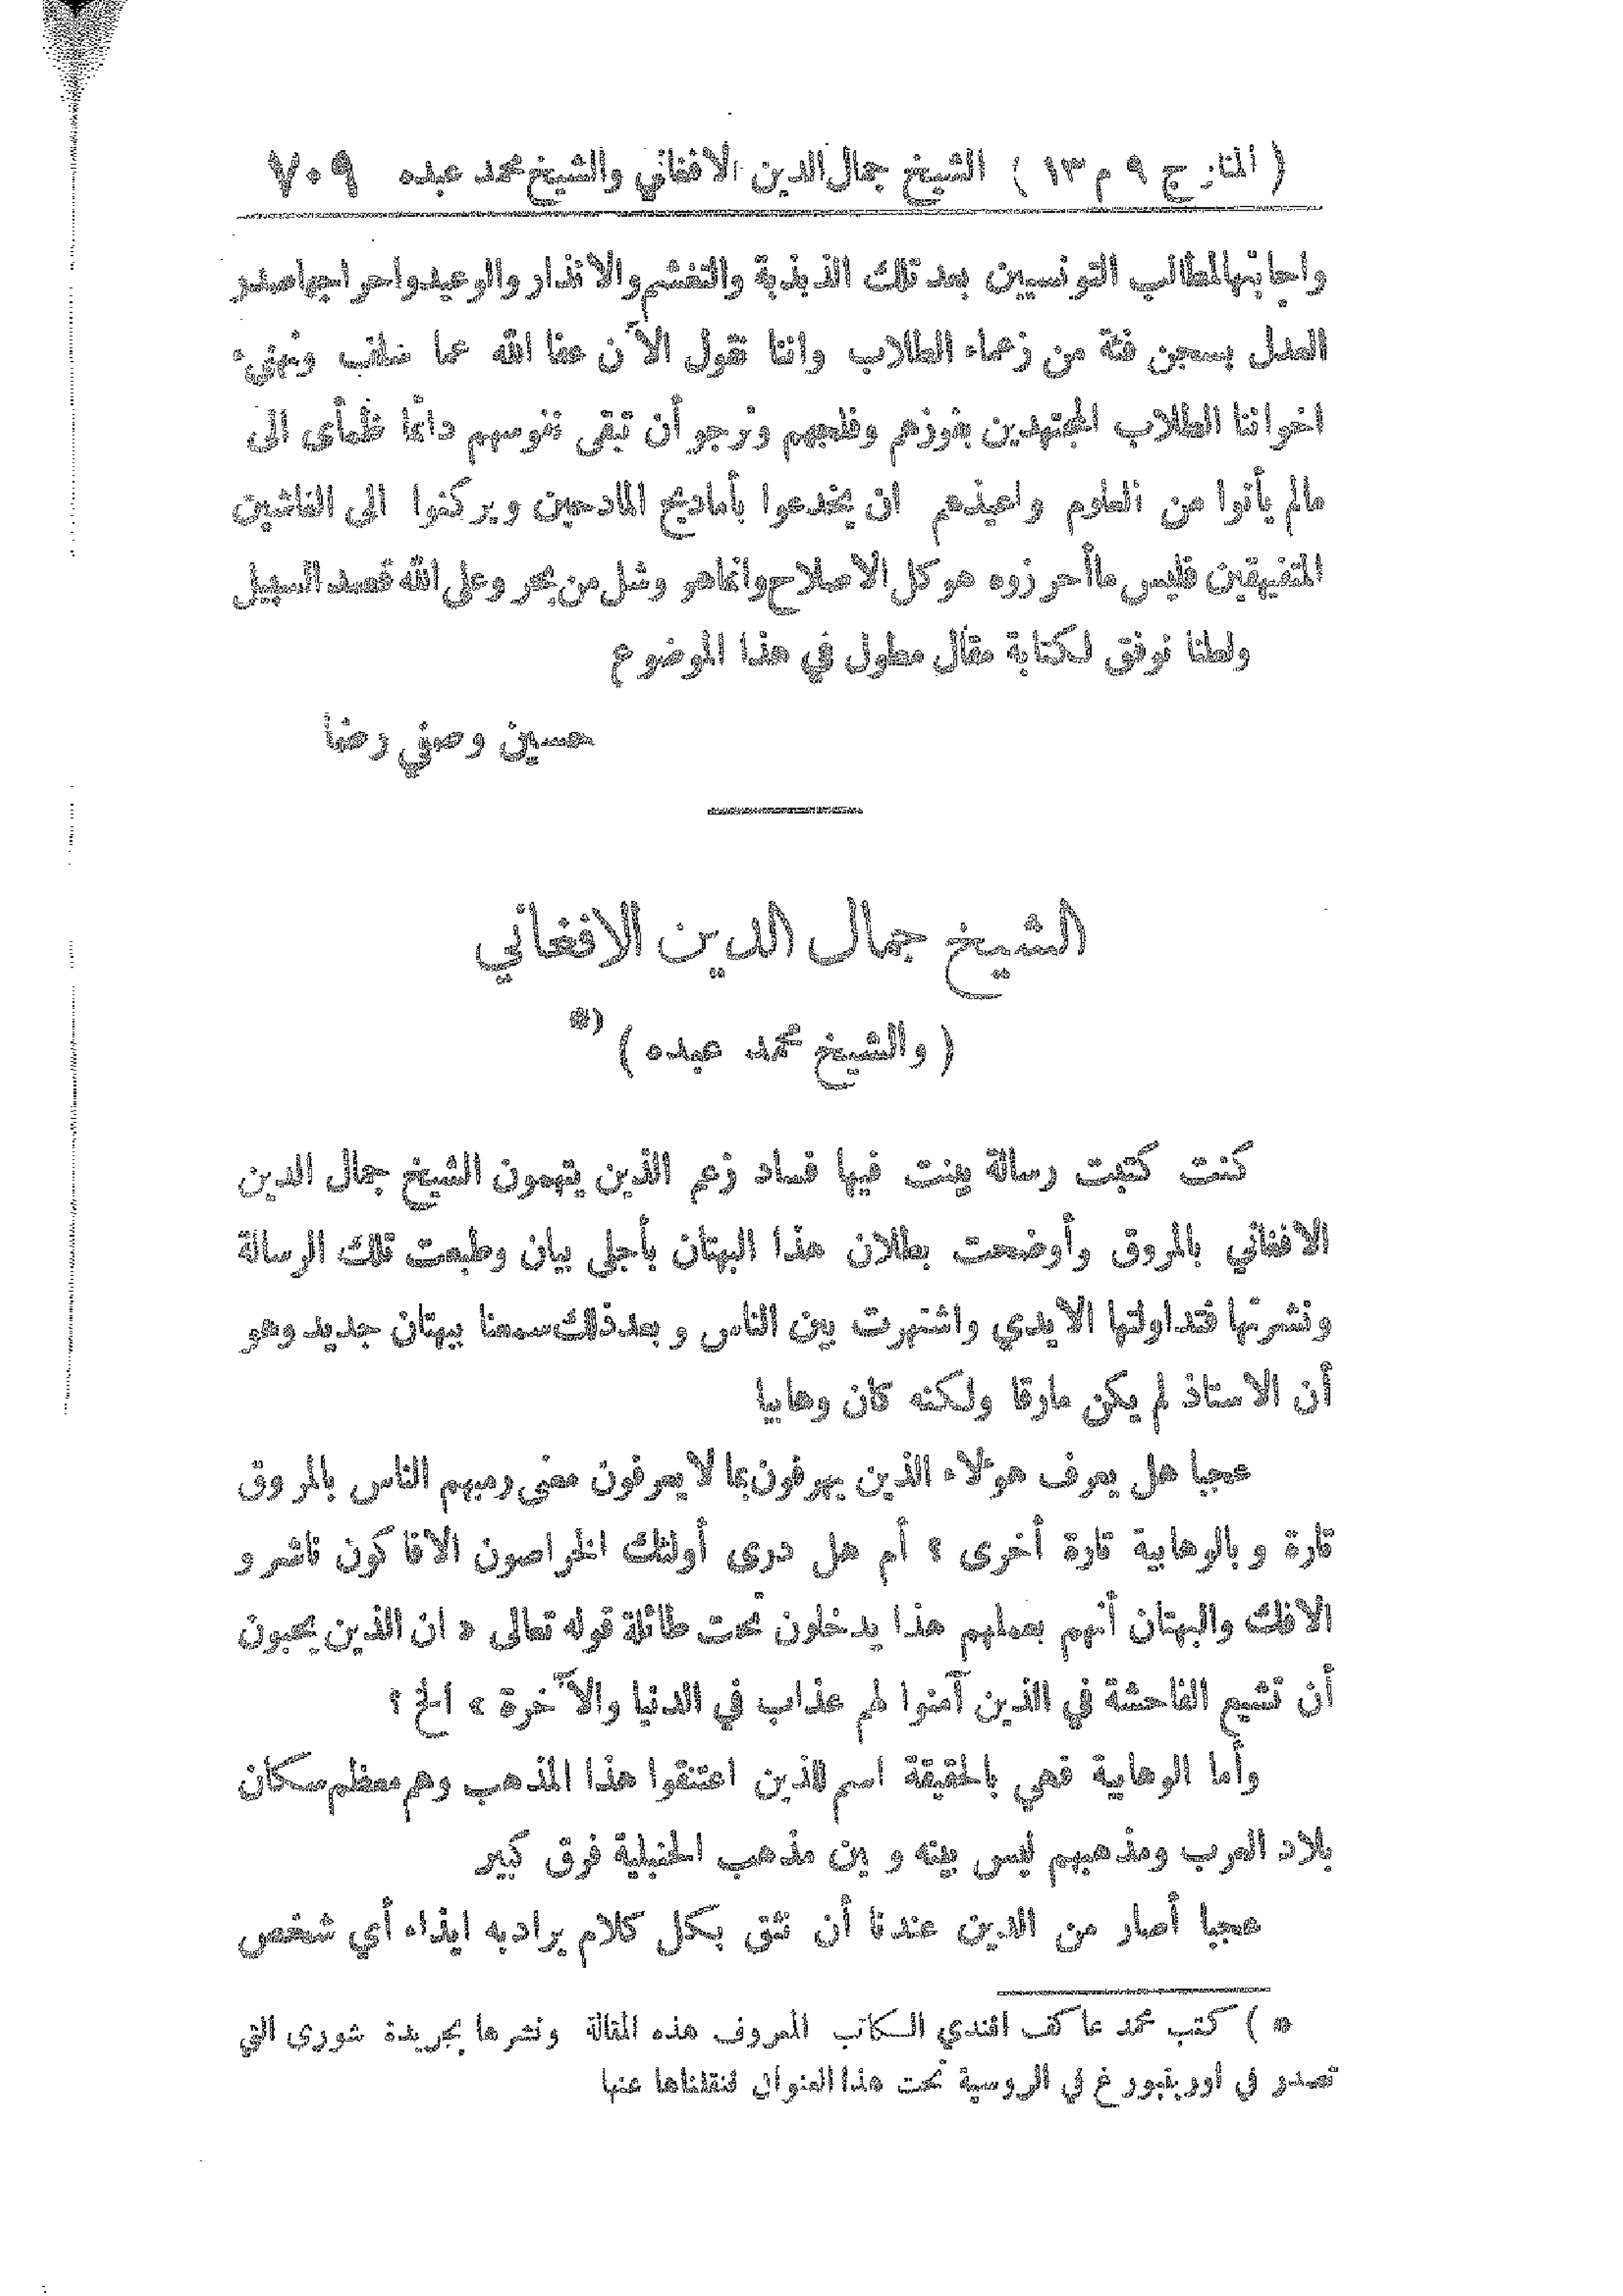 ( المنار ج ٩ م ١٣ ) الشيخ جمال الدين الافغاني والشيخ محمد عبده ٧٠٩
واجابتها لمطالب التونسيين بعد تلك الذبذبة والتغشم والانذار والوعيد واحراجها صدر
العدل بسجن فئة من زعماء الطلاب واننا نقول الآن عفا الله عما سلف ونهنىء
اخواننا الطلاب المجتهدين بفوزهم وفلجهم ونرجو أن تبقى نفوسهم دائما ظمأى الى
مالم يأتوا من العلوم ونعيذهم ان يخدعوا بأماديح المادحين ويركنوا الى الغاشين
المتفيهقين فليس ماأحرزوه هو كل الاصلاح وانما هو وشل من بحر وعلى الله قصد السبيل
ولعلنا نوفق لكتابة مقال مطول في هذا الموضوع
حسين وصفي رضا
الشيخ جمال الدين الافغاني
( والشيخ محمد عبده ) *)
كنت كتبت رسالة بينت فيها فساد زعم الذين يتهمون الشيخ جمال الدين
الافغاني بالمروق وأوضحت بطلان هذا البهتان بأجلى بيان وطبعت تلك الرسالة
ونشرتها فتداولتها الايدي واشتهرت بين الناس وبعد ذلك سمعنا ببهتان جديد وهو
أن الاستاذ لم يكن مارقا ولكنه كان وهابيا
عجبا هل يعرف هؤلاء الذين يهرفون بما لا يعرفون معنى رميهم الناس بالمروق
تارة وبالوهابية تارة أخرى ؟ أم هل درى أولئك الخراصون الافاكون ناشرو
الافك والبهتان أنهم بعملهم هذا يدخلون تحت طائلة قوله تعالى « ان الذين يحبون
أن تشيع الفاحشة في الذين آمنوا لهم عذاب في الدنيا والآخرة » الخ ؟
وأما الوهابية فهي بالحقيقة اسم للذين اعتنقوا هذا المذهب وهم معظم سكان
بلاد العرب ومذهبهم ليس بينه وبين مذهب الحنبلية فرق كبير
عجبا أصار من الدين عندنا أن نثق بكل كلام يراد به ايذاء أي شخص
* ) كتب محمد عاكف افندي الكاتب المعروف هذه المقالة ونشرها بجريدة شورى التي
تصدر في اورنبورغ في الروسية تحت هذا العنوان فنقلناها عنها